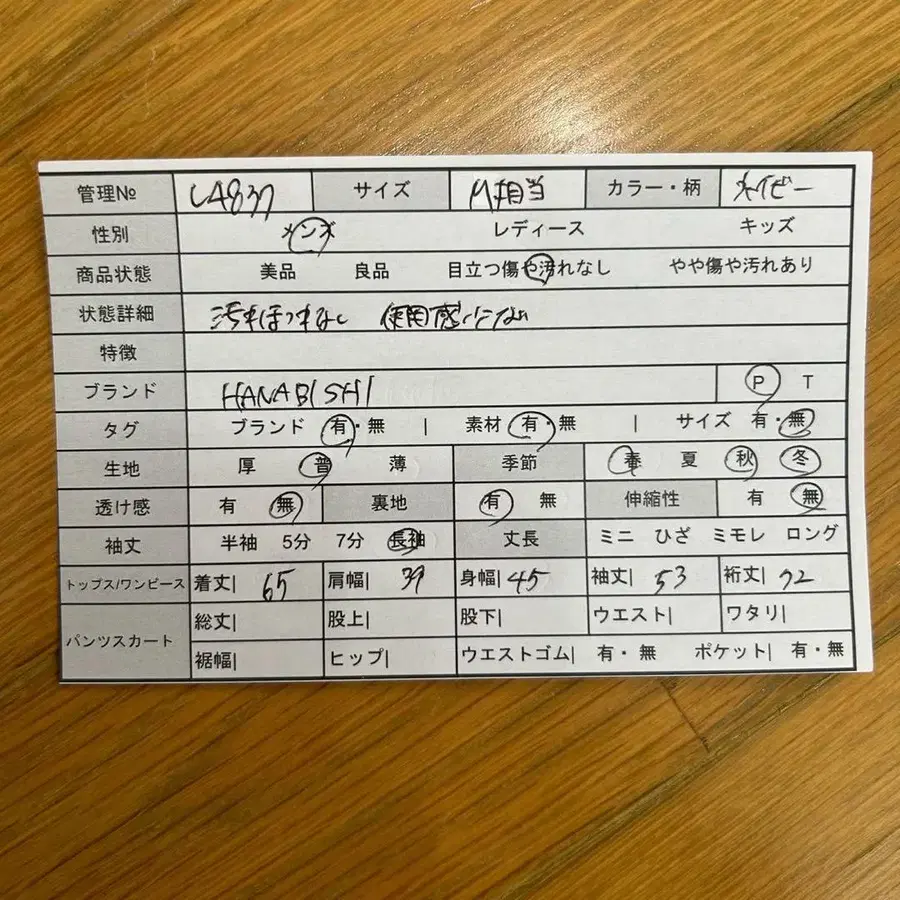 管理№ L4837 サイズ M相当 カラー・柄 ネイビー
性別 メンズ レディース キッズ
商品状態 美品 良品 目立つ傷や汚れなし やや傷や汚れあり
状態詳細 汚れほつれなし 使用感
特徴
ブランド HANABISHI P T
タグ ブランド 有・無 | 素材 有・無 | サイズ 有・無
生地 厚 普 薄 季節 春 夏 秋 冬
透け感 有 無 裏地 有 無 伸縮性 有 無
袖丈 半袖 5分 7分 長袖 丈長 ミニ ひざ ミモレ ロング
トップス/ワンピース 着丈| 65 肩幅| 39 身幅| 45 袖丈| 53 裄丈| 72
パンツスカート 総丈| 股上| 股下| ウエスト| ワタリ|
裾幅| ヒップ| ウエストゴム| 有・無 ポケット| 有・無